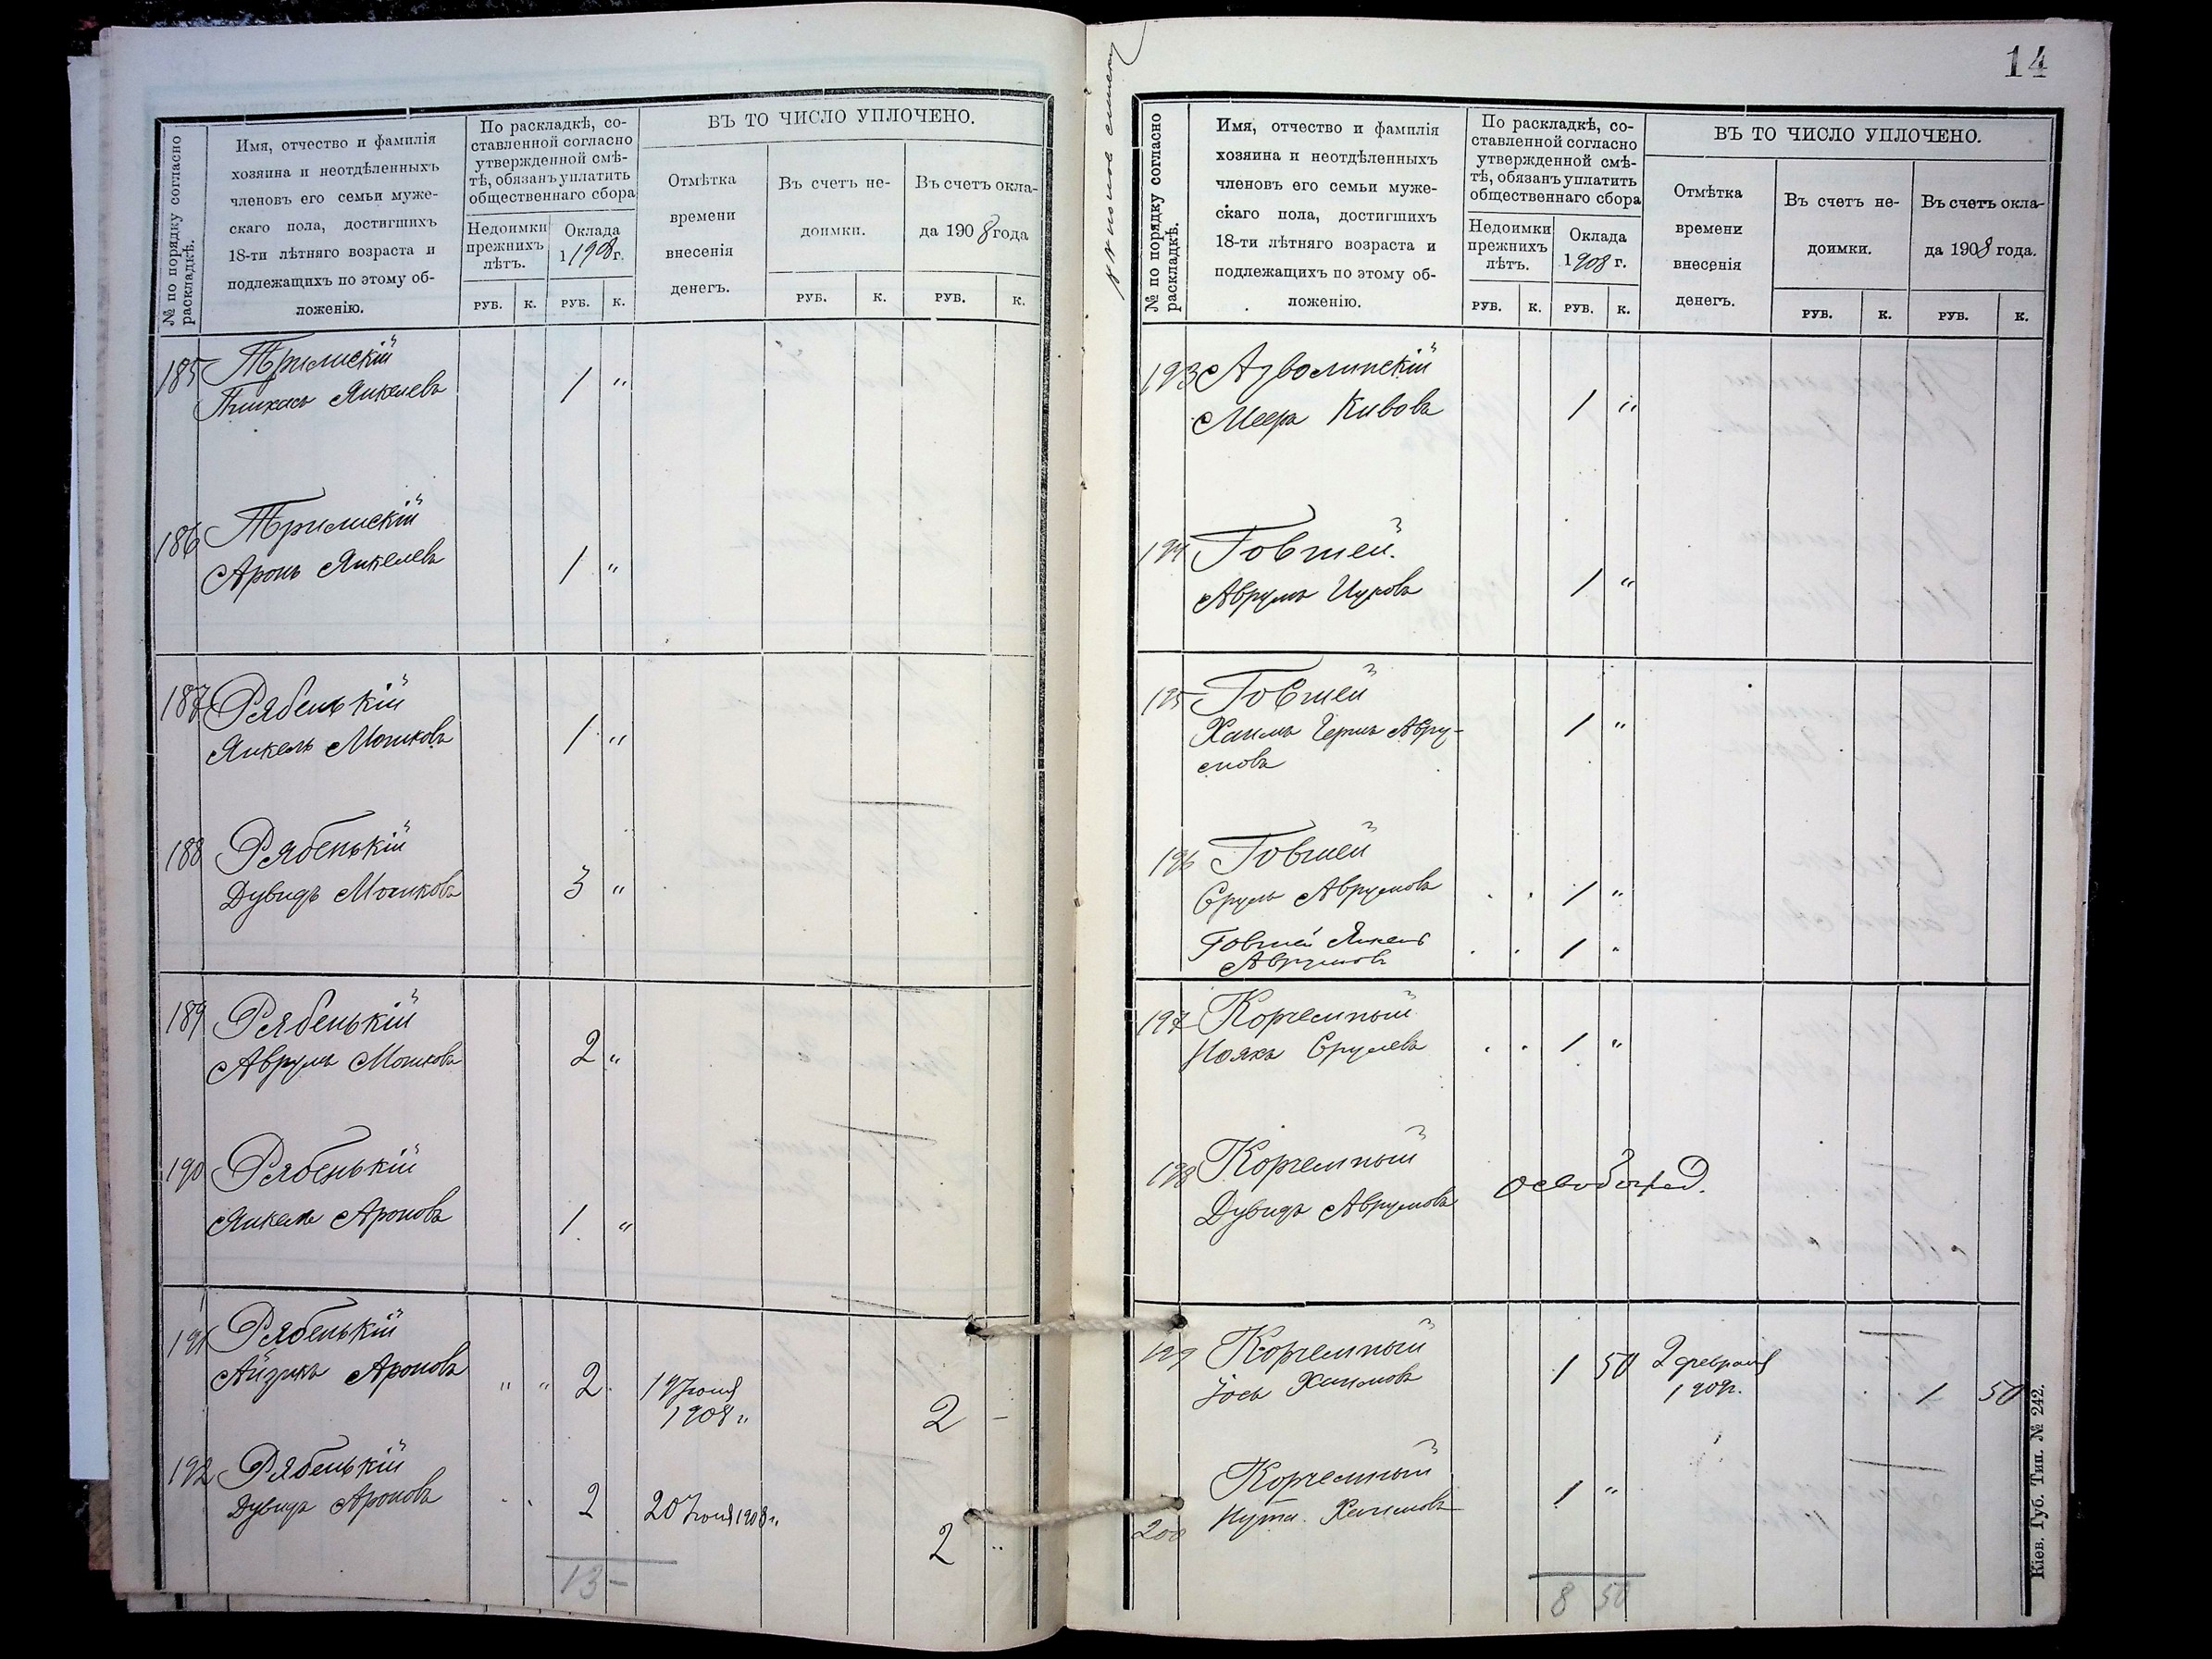 № по порядку согласно раскладкѣ.
Имя, отчество и фамилія
хозяина и неотдѣленныхъ
членовъ его семьи муже-
скаго пола, достигшихъ
18-ти лѣтняго возраста и
подлежащихъ по этому об-
ложенію.
По раскладкѣ, со-
ставленной согласно
утвержденной смѣ-
тѣ, обязанъ уплатить
общественнаго сбора
Недоимки
прежнихъ
лѣтъ.
Оклада
1908 г.
РУБ. К. РУБ. К.
ВЪ ТО ЧИСЛО УПЛОЧЕНО.
Отмѣтка
времени
внесенія
денегъ.
Въ счетъ не-
доимки.
РУБ. К.
Въ счетъ окла-
да 1908 года
РУБ. К.
185 Трилискій
Пинхасъ Янкелевъ 1 "
186 Трилискій
Аронъ Янкелевъ 1 "
187 Рябенькій
Янкель Мошковъ 1 "
188 Рябенькій
Дувидъ Мошковъ 3 "
189 Рябенькій
Аврумъ Мошковъ 2 "
190 Рябенькій
Янкель Ароновъ 1 "
191 Рябенькій
Айзикъ Ароновъ " " 2
1908 2 -
192 Рябенькій
Дувидъ Ароновъ 2 20 Іюня 1908 г. 2 "
13 -
14
№ по порядку согласно раскладкѣ.
Имя, отчество и фамилія
хозяина и неотдѣленныхъ
членовъ его семьи муже-
скаго пола, достигшихъ
18-ти лѣтняго возраста и
подлежащихъ по этому об-
ложенію.
По раскладкѣ, со-
ставленной согласно
утвержденной смѣ-
тѣ, обязанъ уплатить
общественнаго сбора
Недоимки
прежнихъ
лѣтъ.
Оклада
1908 г.
РУБ. К. РУБ. К.
ВЪ ТО ЧИСЛО УПЛОЧЕНО.
Отмѣтка
времени
внесенія
денегъ.
Въ счетъ не-
доимки.
РУБ. К.
Въ счетъ окла-
да 1908 года.
РУБ. К.
193 Азволинскій
Мееръ Кивовъ 1 "
194 Говшей
Аврумъ 1 "
195 Говшей
Хаимъ Герша Авру-
мовъ 1 "
196 Говшей
Сруль Аврумовъ 1 "
Говшей Янкель
Аврумовъ 1 "
197 Корчемный
Срулевъ 1 "
198 Корчемный
Дувидъ Аврумовъ освобожд.
199 Корчемный
Іось Хаимовъ 1 50 2 февраля
1909 г. 1 50
200 Корчемный
Нута Хаимовъ 1 "
8 50
Кіев. Губ. Тип. № 242.